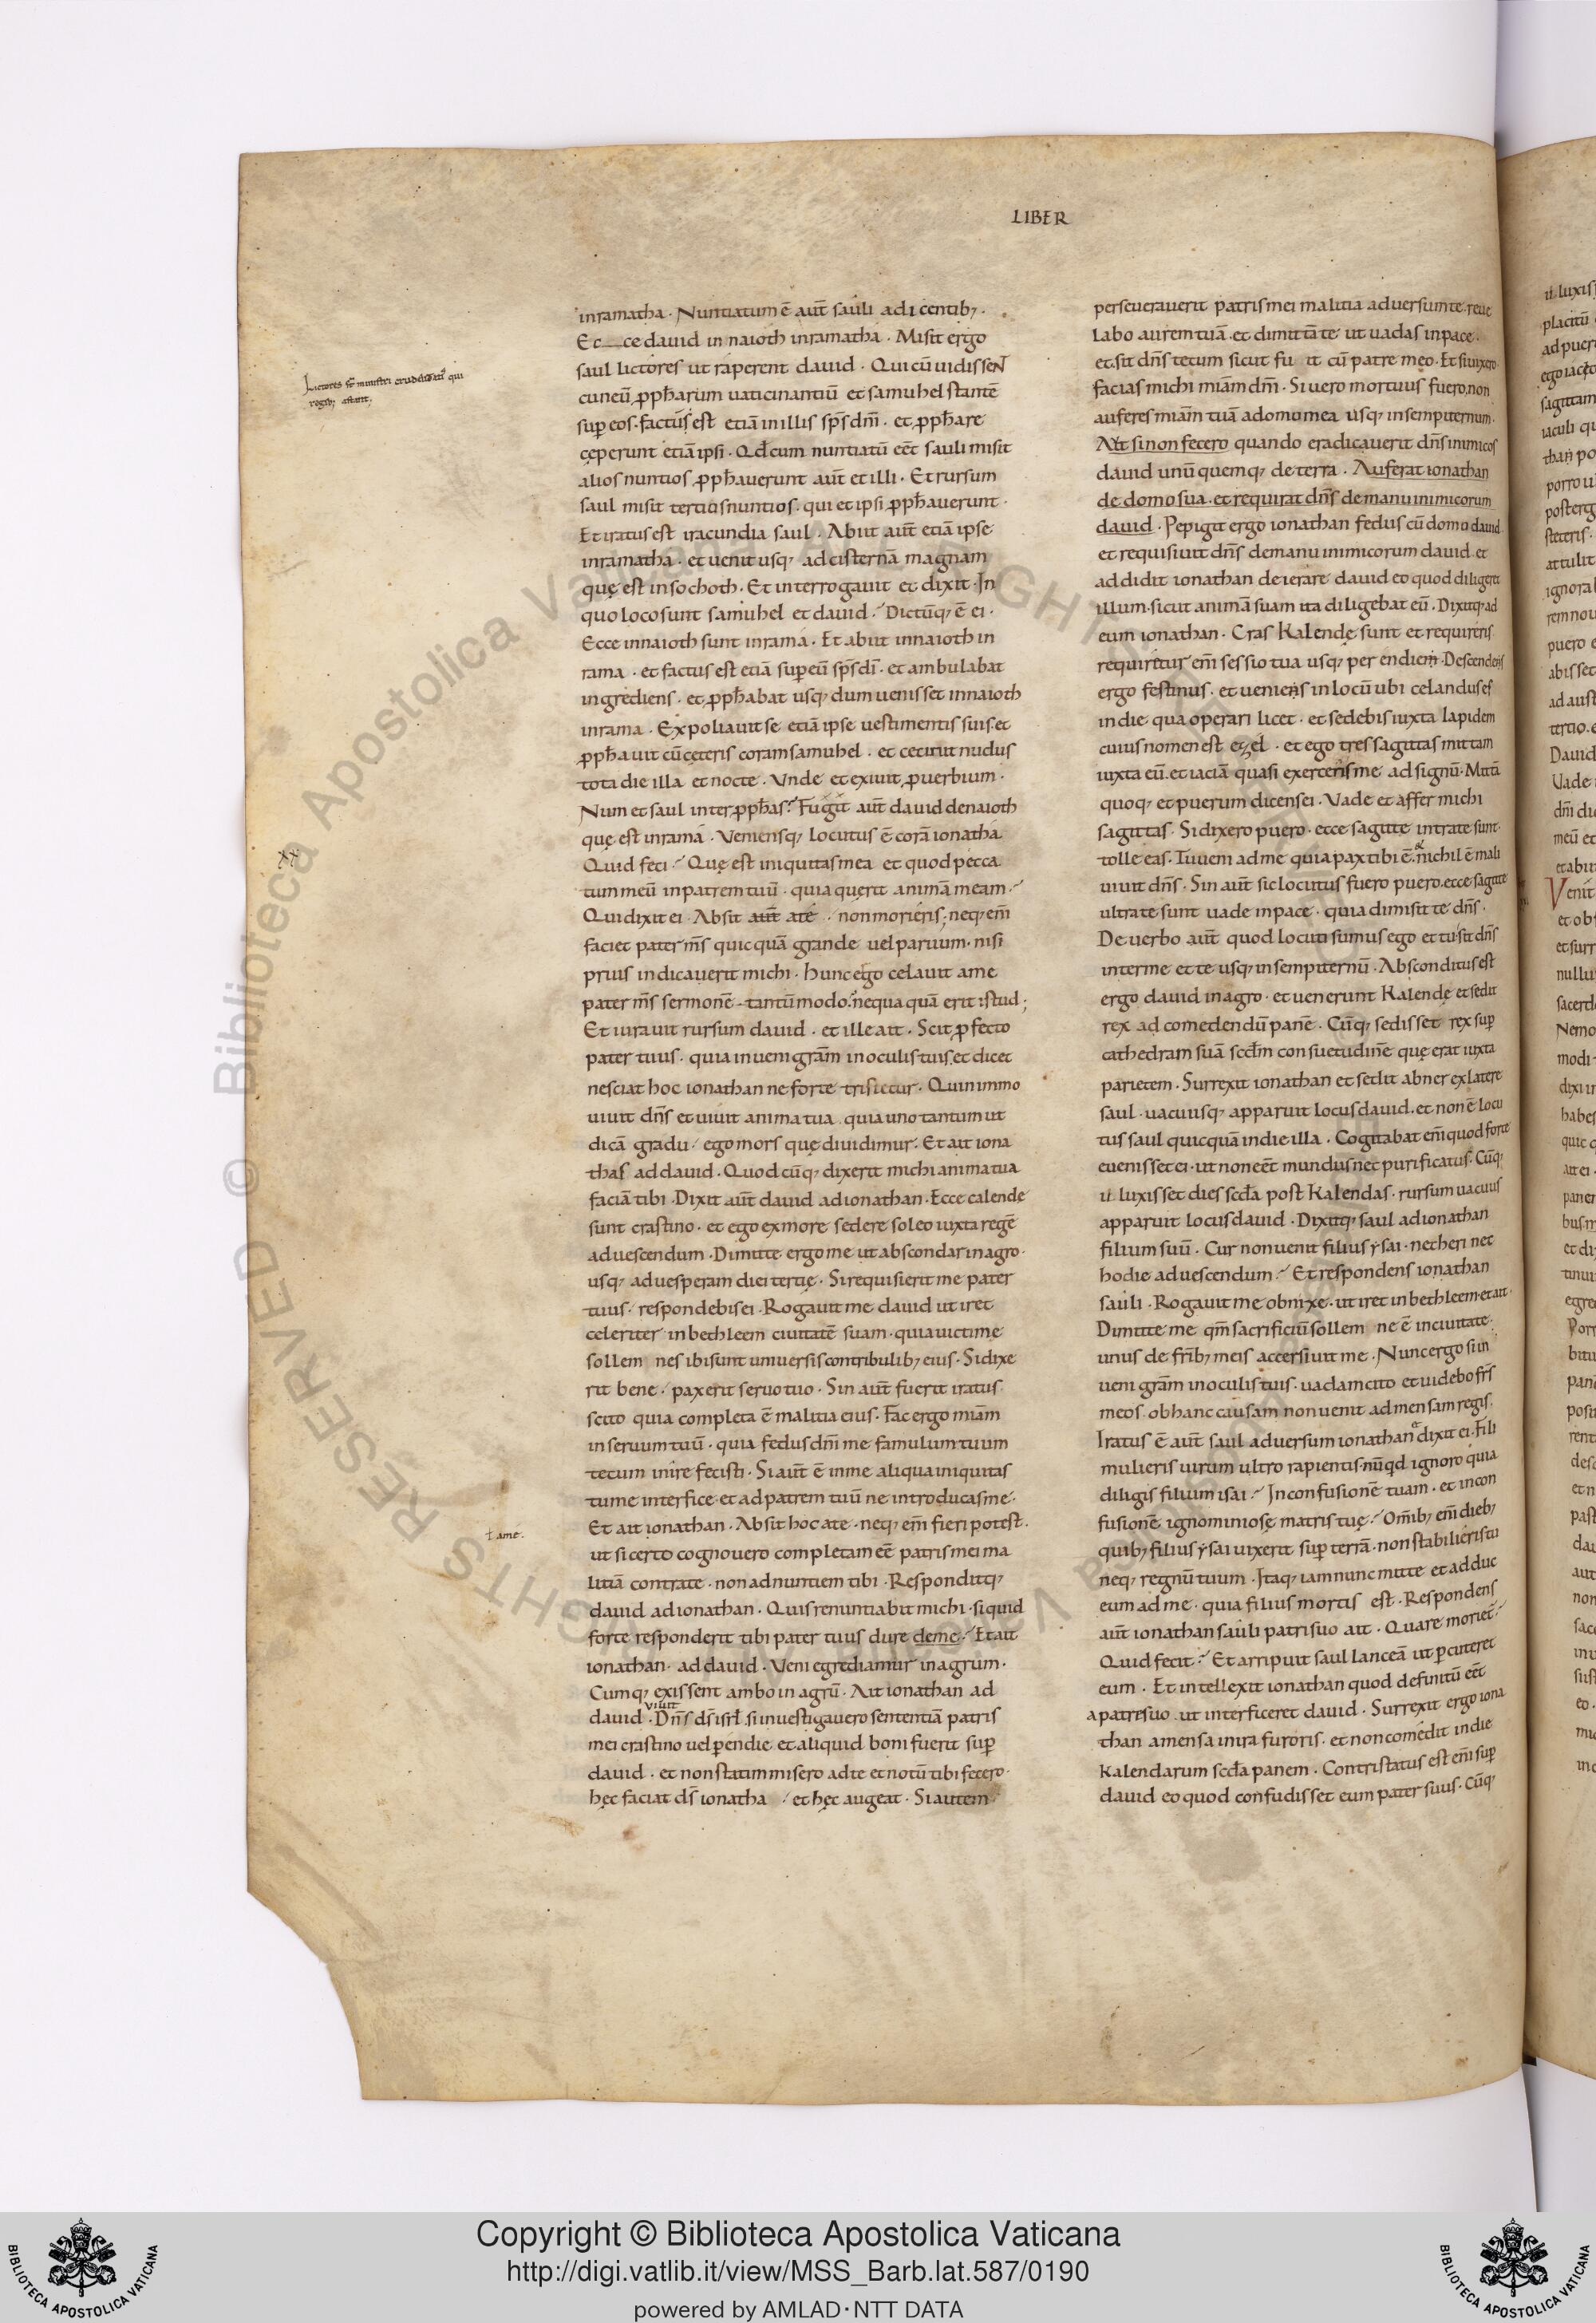 LIBER
inramatha · Nuntiatum ē aut̄ sauli adicentib; ·
Ec ce dauid in naioth inramatha · Misit ergo
saul lictores ut raperent dauid · Qui cū uidissent
cuneū ꝓph̄arum uaticinantiū et samuhel stantē
sup eos · factus est etiā in illis sp̄s dn̄i · et ꝓph̄are
cęperunt etiā ipsi · Qd̄ cum nuntiatū eēt sauli misit
alios nuntios ꝓph̄auerunt aut̄ et illi · Et rursum
saul misit tertios nuntios · qui et ipsi ꝓph̄auerunt ·
Et iratus est iracundia saul · Abiit aut̄ etiā ipse
inramatha · et uenit usq; ad cisternā magnam
quę est insochoth · Et interrogauit et dixit · In
quo loco sunt samuhel et dauid · Dictūq; ē ei ·
Ecce innaioth sunt inrama · Et abiit innaioth in
rama · et factus est etiā sup eū sp̄s dī · et ambulabat
ingrediens · et ꝓph̄abat usq; dum uenisset innaioth
inrama · Expoliauit se etiā ipse uestimentis suis · et
ꝓph̄auit cū cęteris coram samuhel · et cecidit nudus
tota die illa et nocte · Vnde et exiuit ꝓuerbium ·
Num et saul inter ꝓph̄as? Fugit aut̄ dauid denaioth
quę est inrama · Veniensq; locutus ē corā ionatha
Quid feci? Quę est iniquitas mea et quod pecca
tum meū inpatrem tuū · quia querit animā meam?
Qui dixit ei · Absit aut̄ a te · non morieris; neq; em̄
faciet pater m̄s quicquā grande uel paruum · nisi
prius indicauerit michi · Hunc ego celauit ame
pater m̄s sermonē tantūmodo? nequaquā erit istud;
Et iurauit rursum dauid · et ille ait · Scit ꝓfecto
pater tuus · quia inueni grām in oculis tuis · et dicet
nesciat hoc ionathan ne forte tristetur · Quin immo
uiuit dn̄s et uiuit anima tua quia uno tantum ut
dicā gradu ego mors quę diuidimur · Et ait iona
thas ad dauid · Quodcūq; dixerit michi anima tua
faciā tibi · Dixit aut̄ dauid ad ionathan · Ecce calendę
sunt crastino · et ego ex more sedere soleo iuxta regē
ad uescendum · Dimitte ergo me ut abscondar in agro ·
usq; ad uesperam diei tertię · Si requisierit me pater
tuus respondebis ei · Rogauit me dauid ut iret
celeriter in bethleem ciuitatē suam · quia uictimę
sollem nes ibi sunt uniuersis contribulib; eius · Si dixe
rit bene pax erit seruo tuo · Sin aut̄ fuerit iratus
scito quia completa ē malitia eius · Fac ergo miām
in seruum tuū · quia fedus dn̄i me famulum tuum
tecum inire fecisti · Si aut̄ ē in me aliqua iniquitas
tu me interfice · et ad patrem tuū ne introducas me ·
Et ait ionathan · Absit hoc ate · neq; em̄ fieri potest ·
ut si certo cognouero completam eē patris mei ma
litiā contra te · non adnuntiem tibi · Responditq;
dauid ad ionathan · Quis renuntiabit michi · si quid
forte responderit tibi pater tuus dure deme? Et ait
ionathan · ad dauid · Veni egrediamur in agrum ·
Cumq; exissent ambo in agrū · Ait ionathan ad
uiuit
dauid · Dn̄s ds̄ isrl̄ · si inuestigauero sententiā patris
mei crastino uel perendie et aliquid boni fuerit sup
dauid · et non statim misero ad te et notū tibi fecero ·
hęc faciat ds̄ ionatha et hęc augeat · Si autem
perseuerauerit patris mei malitia aduersum te · reue
labo aurem tuā · et dimittā te ut uadas inpace ·
et sit dn̄s tecum sicut fu it cū patre meo · Et si uixero
facias michi miām dn̄i · Si uero mortuus fuero · non
auferes miām tuā adomo mea usq; in sempiternum ·
Aut si non fecero quando eradicauerit dn̄s inimicos
dauid unū quemq; de terra · Auferat ionathan
de domo sua · et requirat dn̄s de manu inimicorum
dauid · Pepigit ergo ionathan fedus cū domo dauid
et requisiuit dn̄s de manu inimicorum dauid · et
addidit ionathan deierare dauid eo quod diligeret
illum · sicut animā suam ita diligebat eū · Dixitq; ad
eum ionathan · Cras Kalendę sunt et requireris
requiretur em̄ sessio tua usq; perendiem · Descendens
ergo festinus · et uenies in locū ubi celandus es
in die qua operari licet · et sedebis iuxta lapidem
cuius nomen est ezel · et ego tres sagittas mittam
iuxta eū · et iaciā quasi exercens me ad signū · Mittā
quoq; et puerum dicens ei · Vade et affer michi
sagittas · Si dixero puero · ecce sagittę intra te sunt ·
tolle eas · Tu ueni ad me quia pax tibi ē · et nichil ē mali
uiuit dn̄s · Sin aut̄ sic locutus fuero puero · ecce sagittę
ultra te sunt uade inpace · quia dimisit te dn̄s ·
De uerbo aut̄ quod locuti sumus ego et tu sit dn̄s
inter me et te usq; in sempiternū · Absconditus est
ergo dauid in agro · et uenerunt Kalendę et sedit
rex ad comedendū panē · Cūq; sedisset rex sup
cathedram suā scd̄m consuetudinē quę erat iuxta
parietem · Surrexit ionathan et sedit abner ex latere
saul · uacuusq; apparuit locus dauid · et non ē locu
tus saul quicquā in die illa · Cogitabat em̄ quod forte
euenisset ei · ut non eēt mundus nec purificatus · Cūq;
illuxisset dies scd̄a post Kalendas · rursum uacuus
apparuit locus dauid · Dixitq; saul ad ionathan
filium suū · Cur non uenit filius ysai · nec heri nec
hodie ad uescendum? Et respondens ionathan
sauli · Rogauit me obnixe · ut iret in bethleem · et ait ·
Dimitte me qm̄ sacrificiū sollem ne ē in ciuitate ·
unus de frīb; meis accersiuit me · Nunc ergo si in
ueni grām in oculis tuis · uadam cito et uidebo fr̄s
meos · ob hanc causam non uenit ad mensam regis ·
Iratus ē aut̄ saul aduersum ionathan et dixit ei · Fili
mulieris uirum ultro rapientis · nūqd ignoro quia
diligis filium isai? In confusionē tuam · et in con
fusionē ignominiosę matris tuę? Om̄ib; em̄ dieb;
quib; filius ysai uixerit sup terrā · non stabilieris tu
neq; regnū tuum · Itaq; iam nunc mitte et adduc
eum ad me · quia filius mortis est · Respondens
aut̄ ionathan sauli patri suo ait · Quare moriet̄?
Quid fecit? Et arripuit saul lanceā ut percuteret
eum · Et intellexit ionathan quod definitū eēt
a patre suo · ut interficeret dauid · Surrexit ergo iona
than a mensa in ira furoris · et non comedit in die
Kalendarum scd̄a panem · Contristatus est em̄ sup
dauid eo quod confudisset eum pater suus · Cūq;
Lictores ministri qui
regib; astant ·
xx
ł ame ·
Copyright © Biblioteca Apostolica Vaticana
http://digi.vatlib.it/view/MSS_Barb.lat.587/0190
powered by AMLAD·NTT DATA
BIBLIOTECA APOSTOLICA VATICANA
BIBLIOTECA APOSTOLICA VATICANA
© Biblioteca Apostolica Vaticana ALL RIGHTS RESERVED